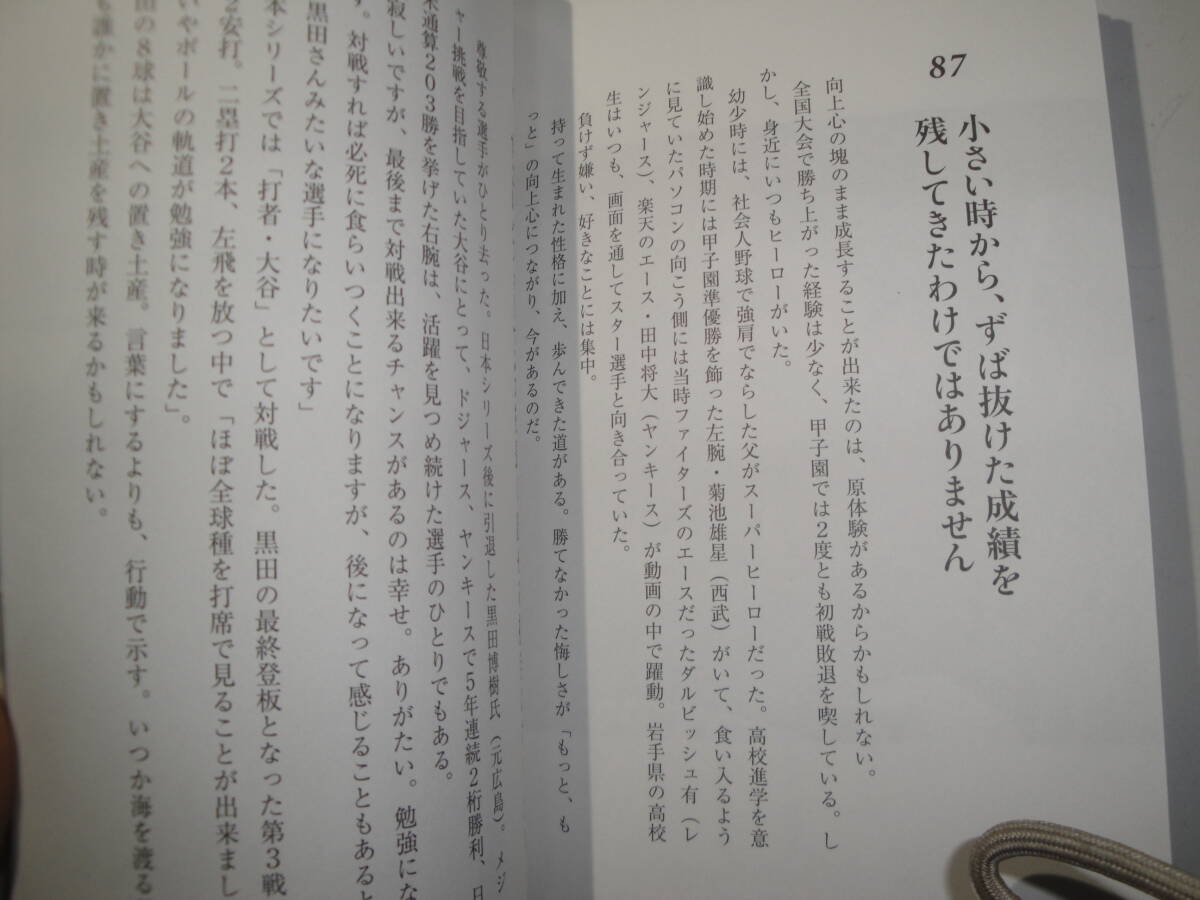 87
小さい時から、ずば抜けた成績を
残してきたわけではありません
向上心の塊のまま成長することが出来たのは、原体験があるからかもしれない。
全国大会で勝ち上がった経験は少なく、甲子園では2度とも初戦敗退を喫している。し
かし、身近にいつもヒーローがいた。
幼少時には、社会人野球で強肩でならした父がスーパーヒーローだった。高校進学を意
識し始めた時期には甲子園準優勝を飾った左腕・菊池雄星（西武）がいて、食い入るよう
に見ていたパソコンの向こう側には当時ファイターズのエースだったダルビッシュ有（レ
ンジャース）、楽天のエース・田中将大（ヤンキース）が動画の中で躍動。岩手県の高校
生はいつも、画面を通してスター選手と向き合っていた。
負けず嫌い、好きなことには集中。
持って生まれた性格に加え、歩んできた道がある。勝てなかった悔しさが「もっと、も
っと」の向上心につながり、今があるのだ。
尊敬する選手がひとり去った。日本シリーズ後に引退した黒田博樹氏（元広島）。メジ
ャー挑戦を目指していた大谷にとって、ドジャース、ヤンキースで5年連続2桁勝利、日
米通算203勝を挙げた右腕は、活躍を見つめ続けた選手のひとりでもある。
寂しいですが、最後まで対戦出来るチャンスがあるのは幸せ。ありがたい。勉強にな
す。対戦すれば必死に食らいつくことになりますが、後になって感じることもあると
黒田さんみたいな選手になりたいです」
本シリーズでは「打者・大谷」として対戦した。黒田の最終登板となった第3戦
2安打。二塁打2本、左飛を放つ中で「ほぼ全球種を打席で見ることが出来まし
いやボールの軌道が勉強になりました」。
田の8球は大谷への置き土産。言葉にするよりも、行動で示す。いつか海を渡る
も誰かに置き土産を残す時が来るかもしれない。